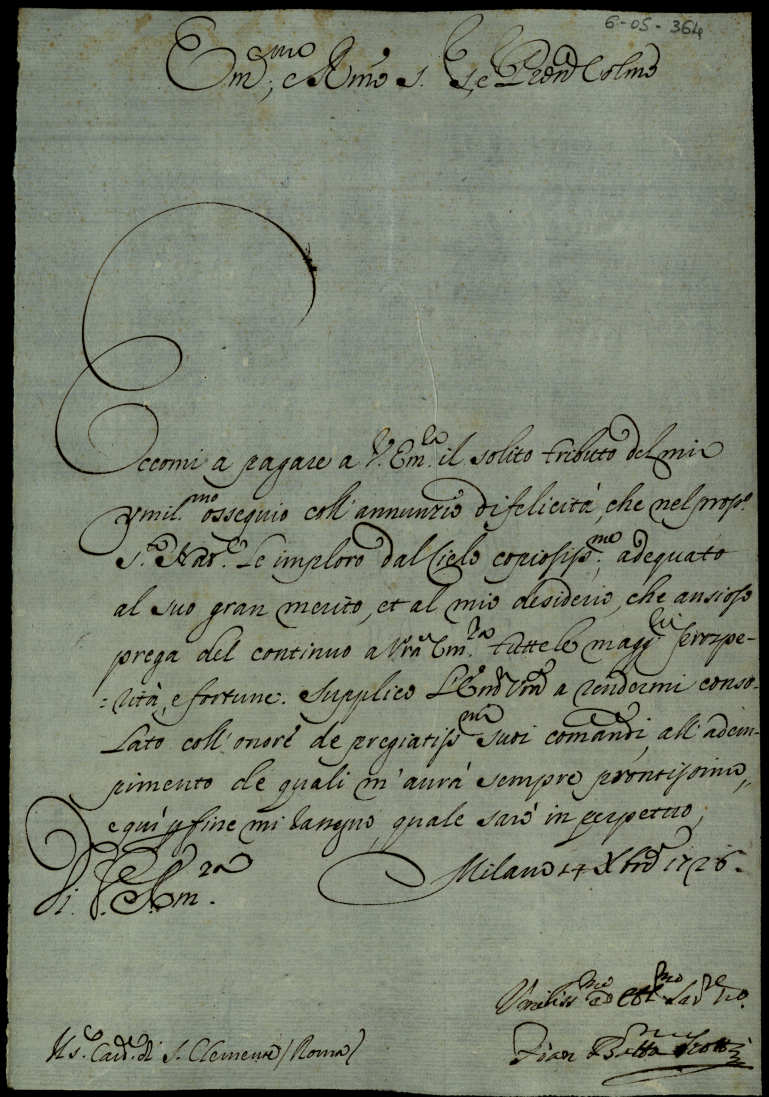 6-05-364
Em.mo, e R.mo S. S.e, e Pron Colmo
Eccomi a pagare a V. Em.za il solito tributo del mio
umil.mo ossequio coll'annunzio di felicità, che nel pross.o
S.to Nat.e Le imploro dal Cielo copiosiss.me, adequato
al suo gran merito, et al mio desiderio, che ansioso
prega del continuo a Vra Em.za tutte le magg.ri prospe-
=rità, e fortune. Supplico L'Em.a Vra a rendermi conso-
Lato coll'onore de pregiatiss.mi suoi comandi, all'adem-
pimento de quali m'aurà sempre prontissimo,
e qui p fine mi rassegno, quale sarò in perpetuo,
Di V. Em.za
Milano 14 Xbre 1726.
Umiliss.mo ed Obl.mo Ser.re Vo.
Gian Batta Scotti
S.r Card. di S. Clemente / Roma /